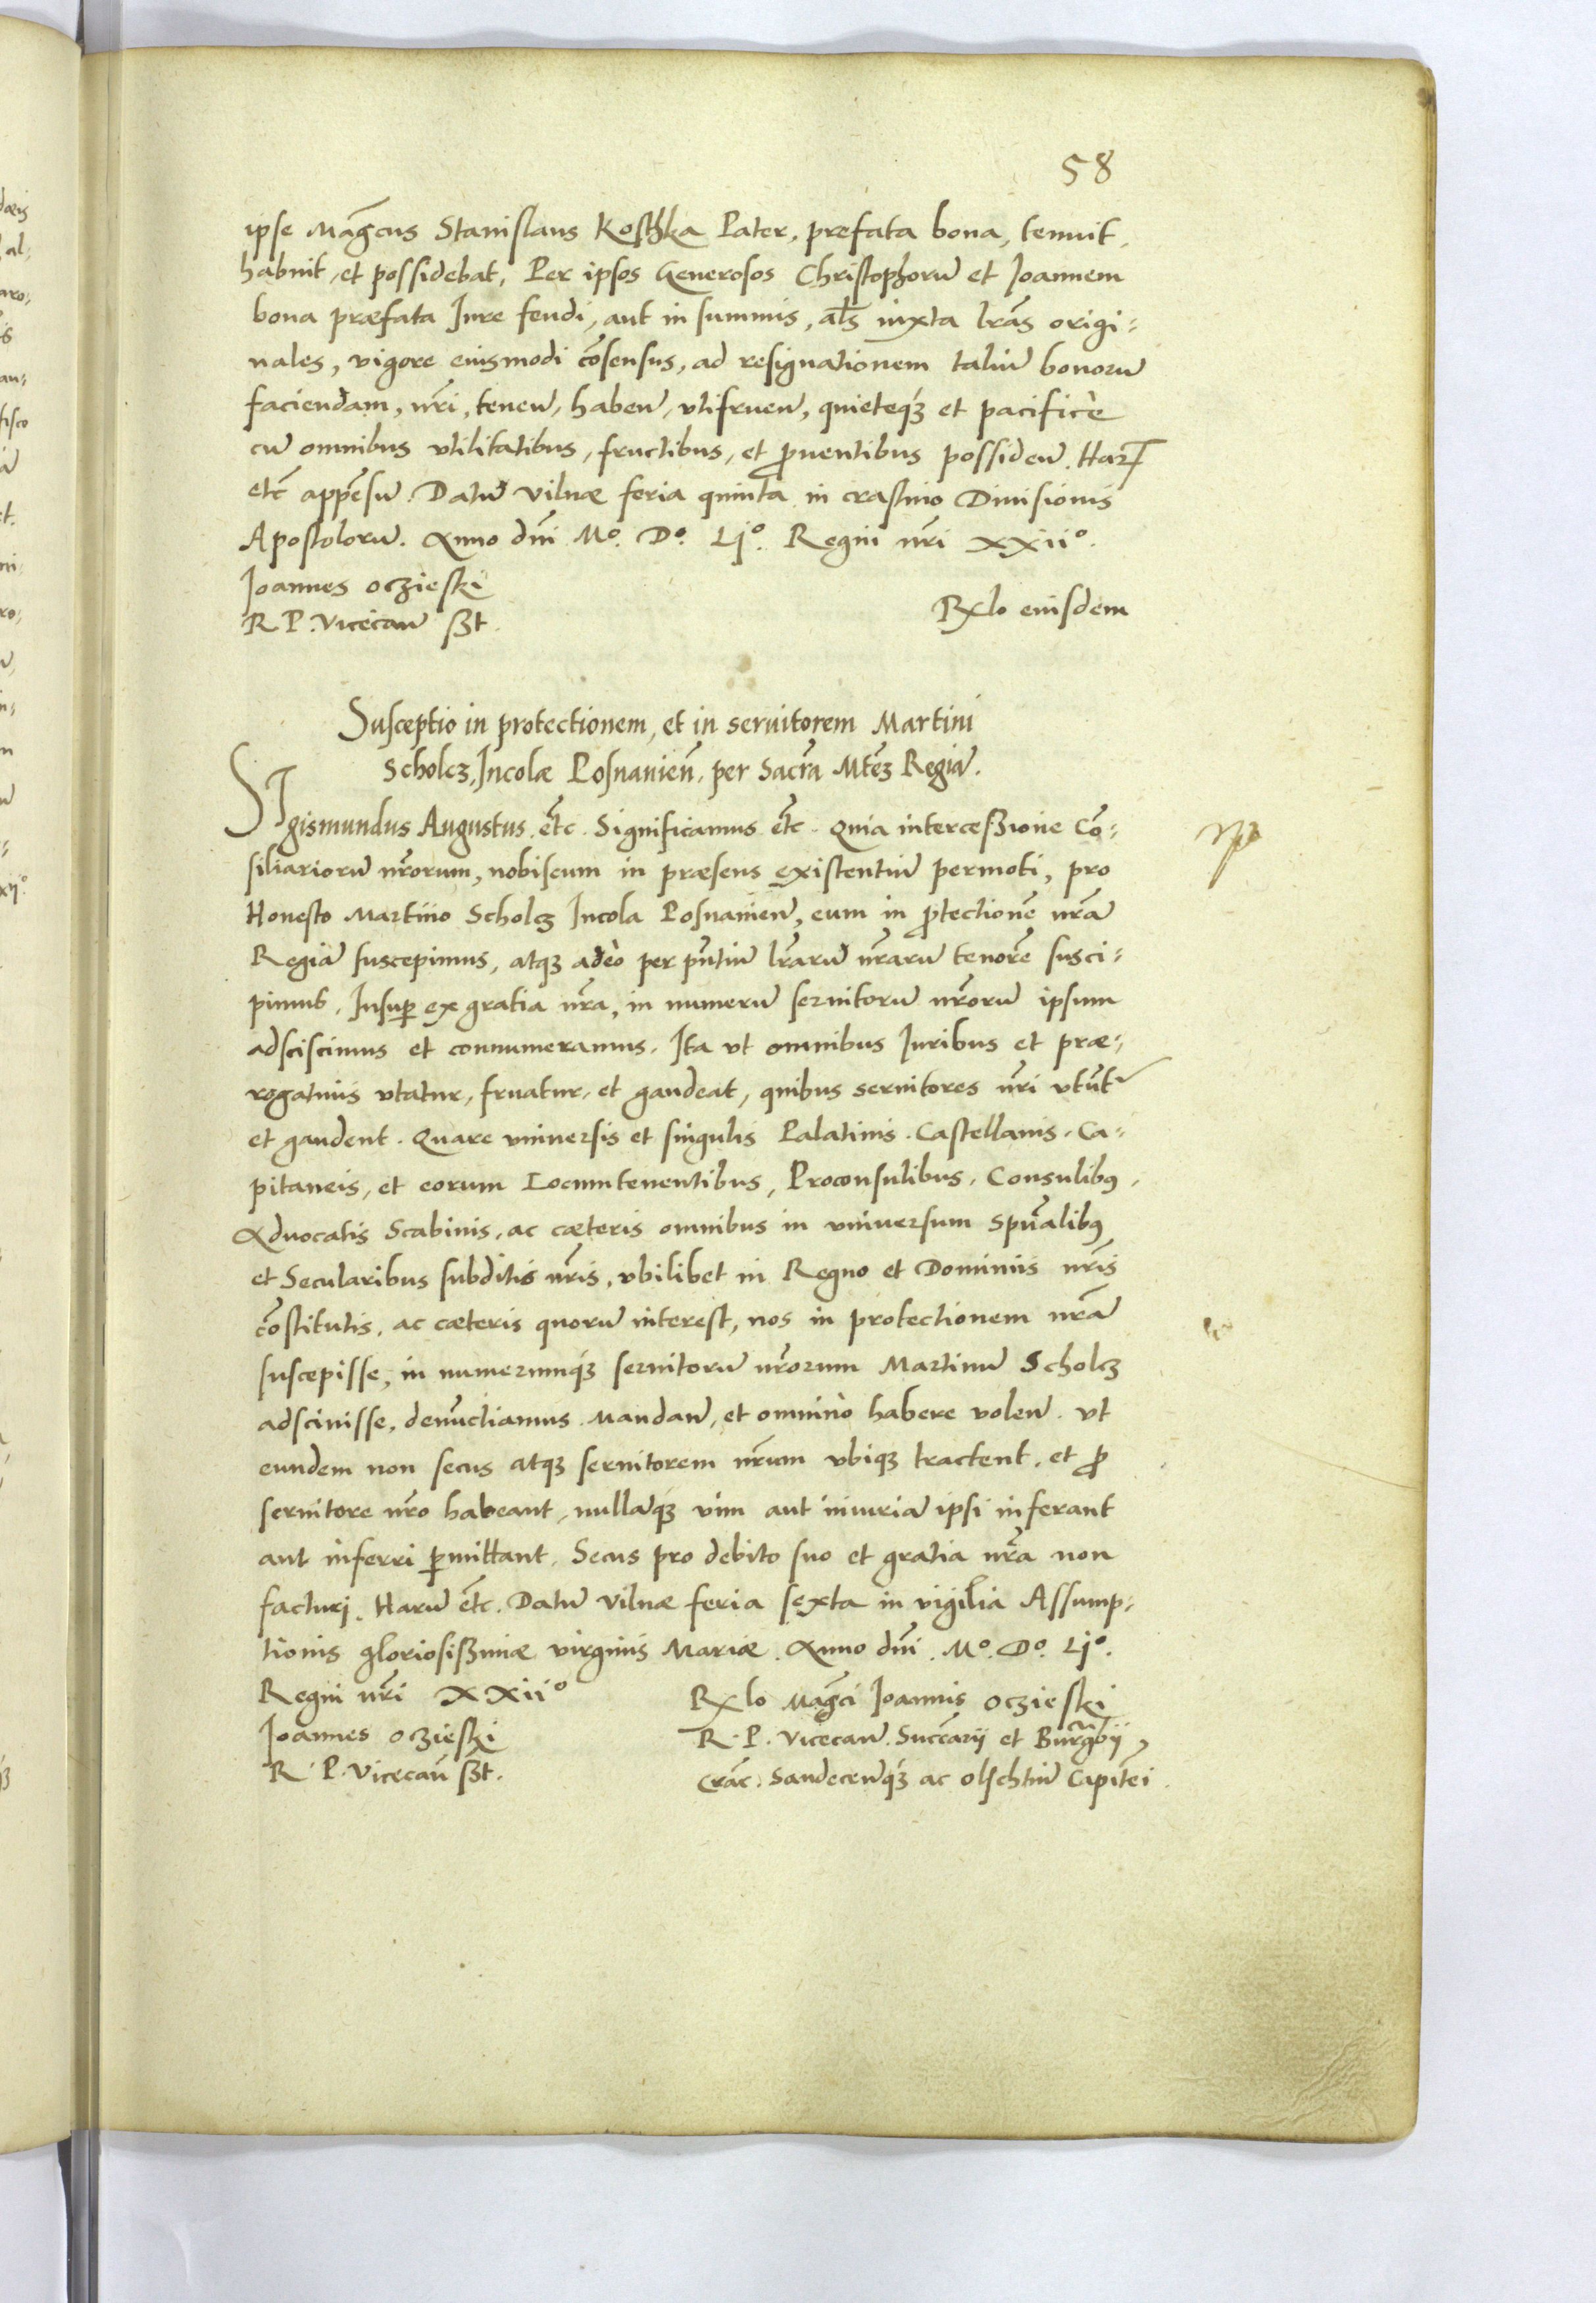 58
ipse Mag̃cus Stanislaus Kosthka Pater, præfata bona, tenuit,
habuit, et possidebat, Per ipsos Generosos Christophorũ et Joannem
bona præfata Jure feudi, aut in summis, al̃s iuxta lr̃as origi-
nales, vigore eiusmodi cõsensus, ad resignationem taliũ bonorũ
faciendam, nr̃i, teneñ, habeñ, vtifrueñ, quieteq́ꝫ et pacificè
cũ omnibus vtilitatibus, fructibus, et ꝓuentibus possideñ. Harꝝ
etc̃ app̃esũ. Datũ Vilnæ feria quinta in crastino Diuisionis
Apostolorũ. Anno dñi Mº. Dº. Ljº. Regni nr̃i xxiiº.
Joannes oczieski
R P. Vicecañ sßt.
Rxlo eiusdem
Susceptio in protectionem, et in seruitorem Martini
Scholcz, Incolæ Posnanieñ, per Sacr̃a Mtẽꝫ Regiã.
SJgismundus Augustus. etc̃. Significamus etc̃. Quia interceßione Cõ-
siliariorũ nr̃orum, nobiscum in præsens existentiũ permoti, pro
Honesto Martino Scholcz Incola Posnanieñ, eum in ꝓtectionẽ nr̃ã
Regiã suscepimus, atqꝫ adeò per pñtiũ lr̃arũ nr̃arũ tenorẽ susci-
pimus. Insuꝑ ex gratia nr̃a, in numerũ seruitorũ nr̃orũ ipsum
adsciscimus et connumeramus. Ita vt omnibus Iuribus et præ-
rogatiuis vtatur, fruatur, et gaudeat, quibus seruitores nr̃i vtũt̃
et gaudent. Quare vniuersis et singulis Palatinis. Castellanis. Ca-
pitaneis, et eorum Locumtenentibus, Proconsulibus. Consulibꝰ.
Aduocatis Scabinis, ac cæteris omnibus in vniuersum Spũalibꝰ
et Secularibus subditis nr̃is, vbilibet in Regno et Dominiis nr̃is
cõstitutis, ac cæteris quorũ interest, nos in protectionem nr̃ã
suscepisse, in numerumq́ꝫ seruitorũ nr̃orum Martinũ Scholcz
adsciuisse, denũctiamus. Mandañ, et omninò habere voleñ. vt
eundem non secus atqꝫ seruitorem nr̃um vbiqꝫ tractent, et ꝓ
seruitore nr̃o habeant, nullãq́ꝫ vim aut iniuriã ipsi inferant
aut inferri ꝑmittant. Secus pro debito suo et gratia nr̃a non
facturi. Harũ etc̃. Datũ Vilnæ feria sexta in vigilia Assump-
tionis gloriosißimæ virginis Mariæ. Anno dñi. Mº. Dº. Ljº.
Regni nr̃i xxiiº
Joannes oczieski
R. P. Vicecañ sßt.
Rxlo Mag̃ci Joannis oczieski
R. P. Vicecañ. Succ̃arij et Burg̃bij
Crac̃. Sandeceñq́ꝫ ac olschtiñ Capit̃ei.